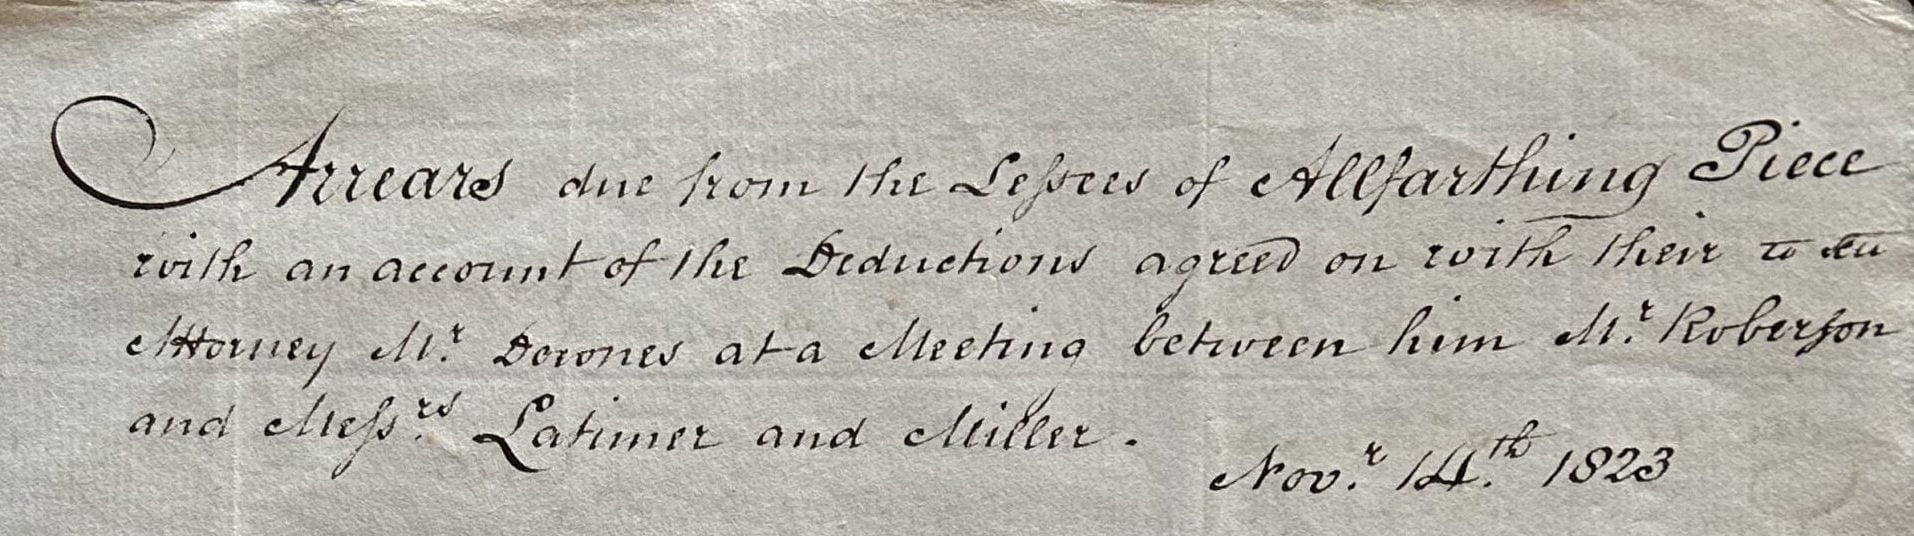 Arrears due from the Leſsees of Allfarthing Piece
with an account of the Deductions agreed on with their
Attorney Mr. Downes at a Meeting between him Mr. Roberson
and Meſsrs. Latimer and Miller.
Novr. 14th. 1823